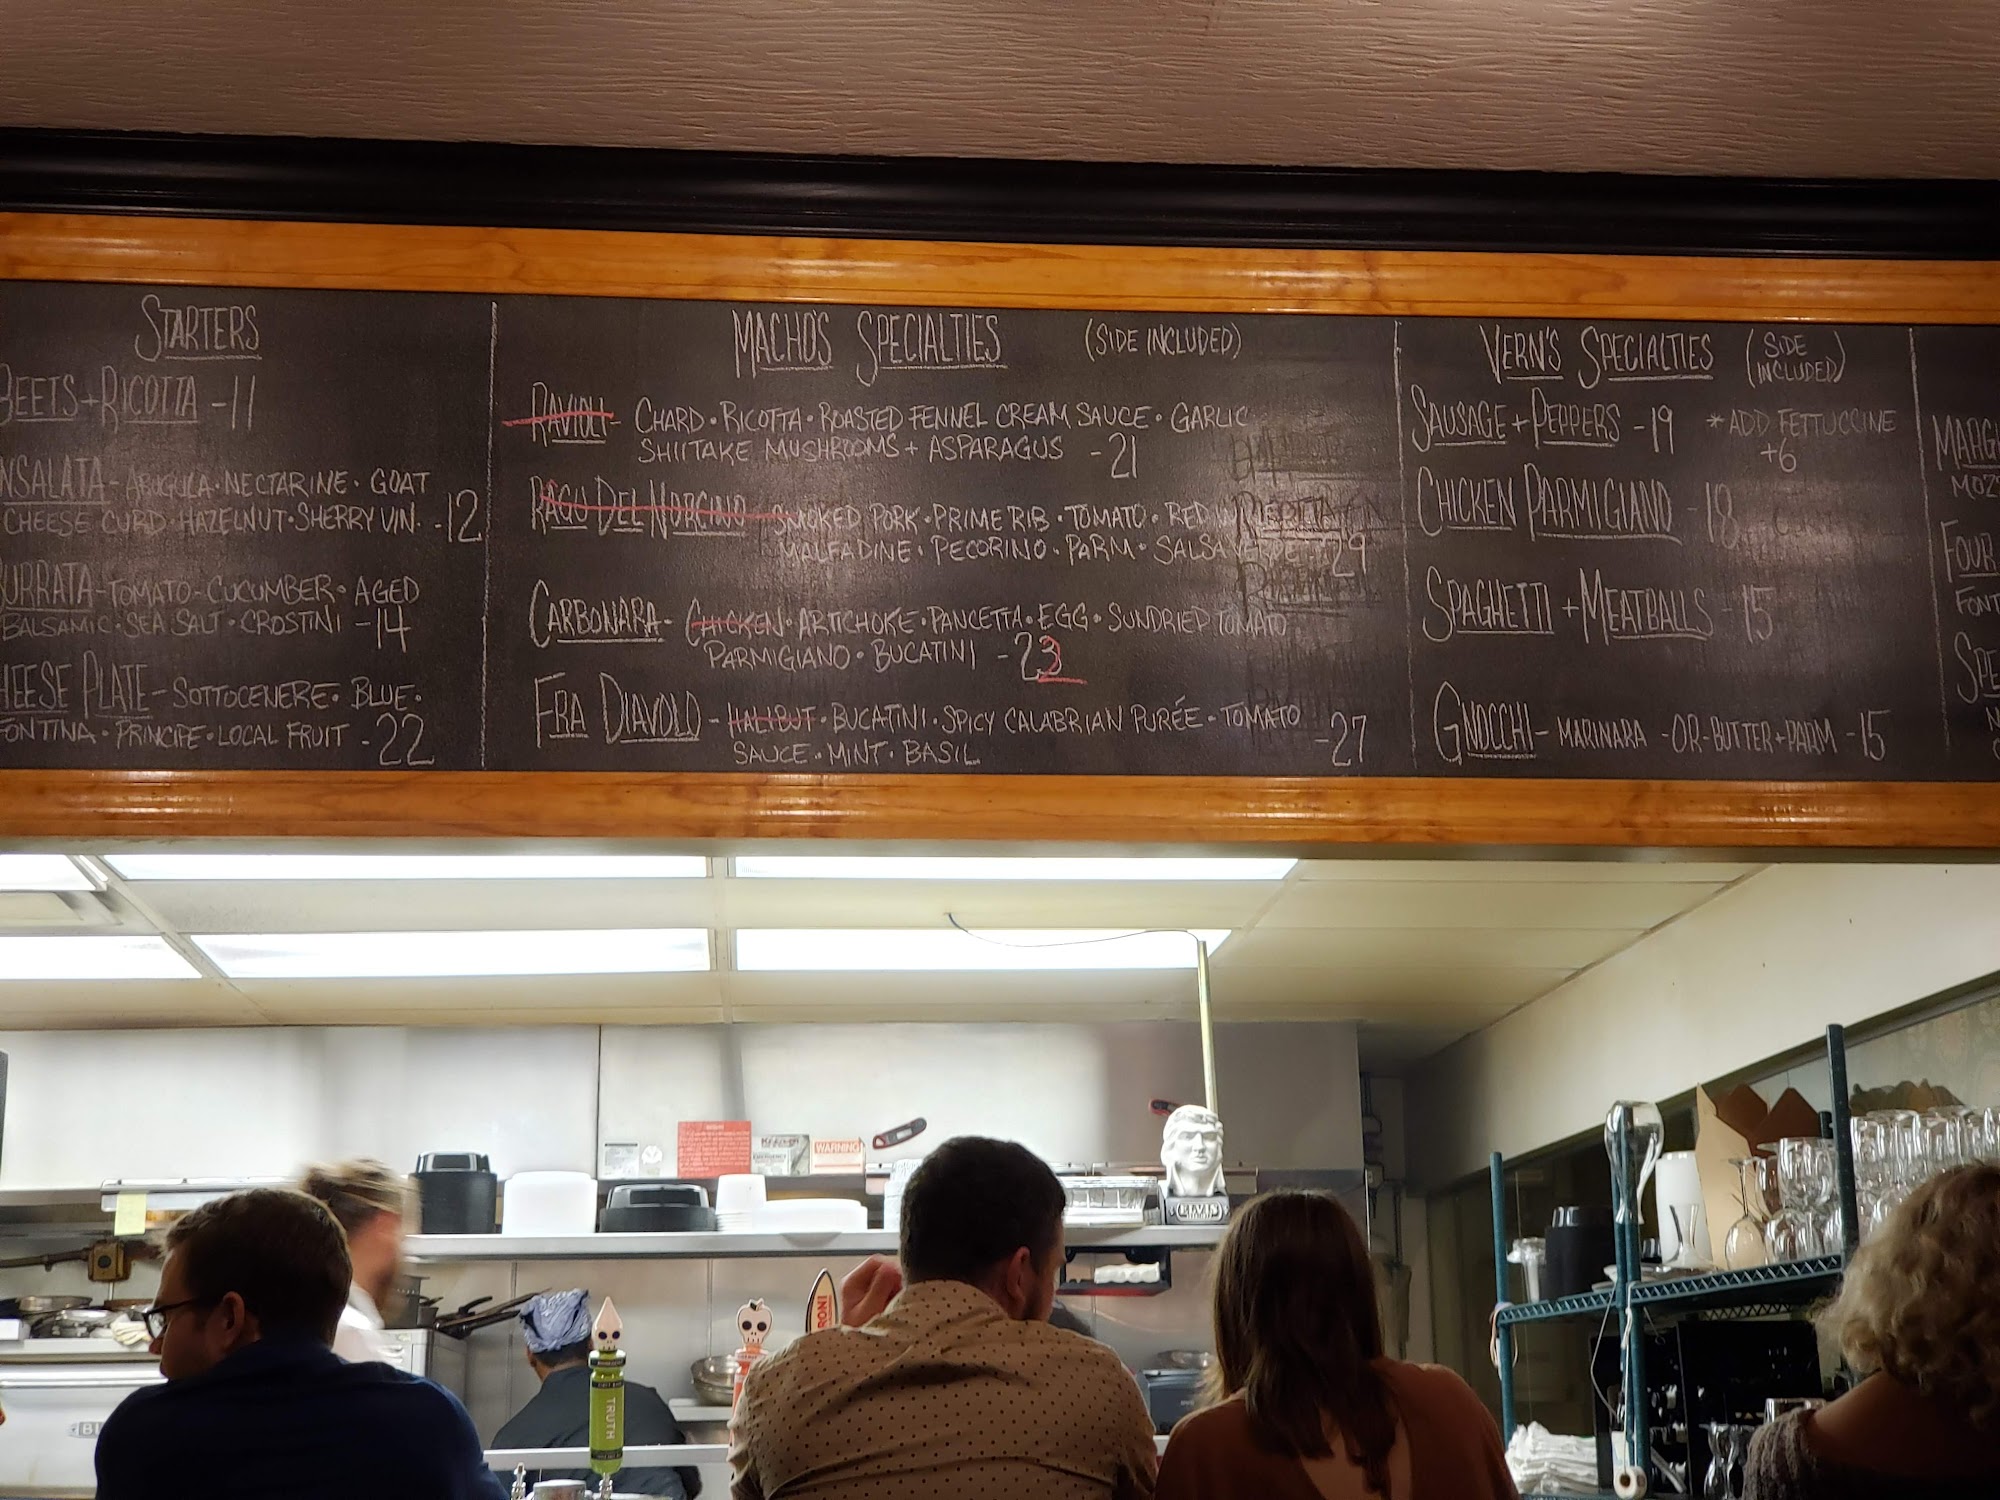 STARTERS
BEETS + RICOTTA - 11
INSALATA - ARUGULA · NECTARINE · GOAT
CHEESE CURD · HAZELNUT · SHERRY VIN. - 12
BURRATA - TOMATO - CUCUMBER · AGED
BALSAMIC · SEA SALT · CROSTINI - 14
CHEESE PLATE - SOTTOCENERE · BLUE ·
FONTINA · PRINCIPE · LOCAL FRUIT - 22
MACHO'S SPECIALTIES (SIDE INCLUDED)
RAVIOLI - CHARD · RICOTTA · ROASTED FENNEL CREAM SAUCE · GARLIC
SHIITAKE MUSHROOMS + ASPARAGUS - 21
RAGU DEL NORCINO SMOKED PORK · PRIME RIB · TOMATO · RED
MALFADINE · PECORINO · PARM · SALSA VERDE 29
CARBONARA - CHICKEN · ARTICHOKE · PANCETTA · EGG · SUNDRIED TOMATO
PARMIGIANO · BUCATINI - 23
FRA DIAVOLO - HALIBUT · BUCATINI · SPICY CALABRIAN PURÉE - TOMATO
SAUCE · MINT · BASIL - 27
VERN'S SPECIALTIES (SIDE
INCLUDED)
SAUSAGE + PEPPERS - 19 * ADD FETTUCCINE
+6
CHICKEN PARMIGIANO - 18
SPAGHETTI + MEATBALLS - 15
GNOCCHI - MARINARA - OR - BUTTER + PARM - 15
FOUR
WARNING
ELVIS
TRUTH
RONI